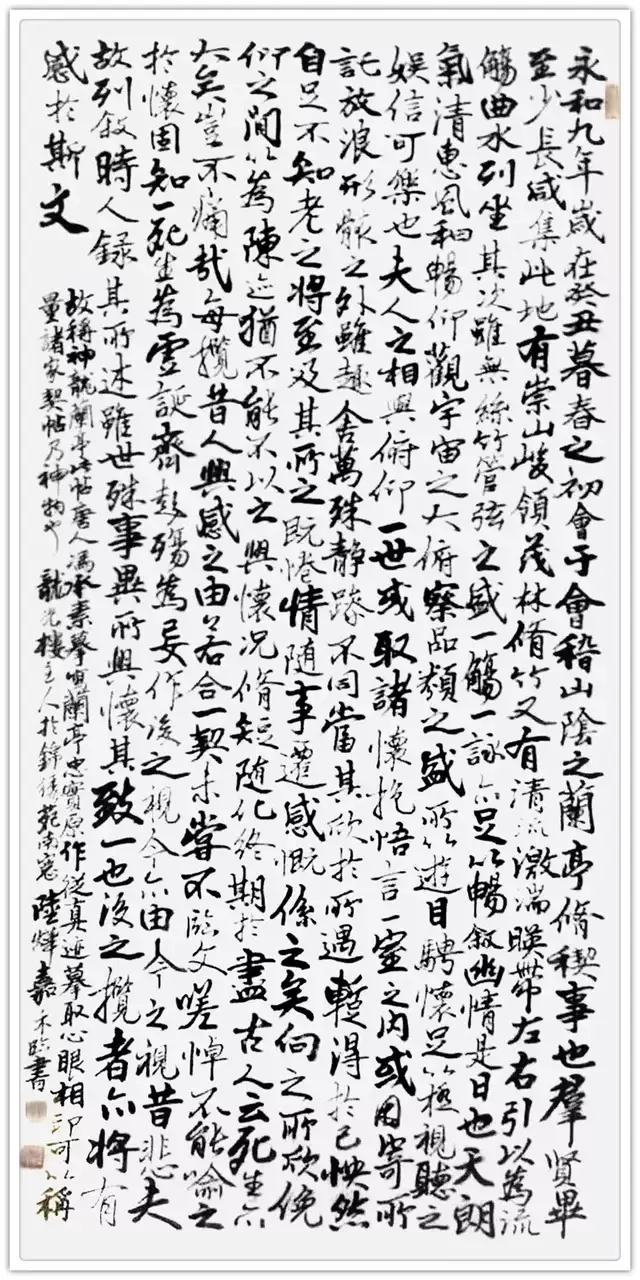 永和九年歲在癸丑暮春之初會于會稽山陰之蘭亭脩稧事也羣賢畢
至少長咸集此地有崇山峻領茂林脩竹又有清流激湍暎帶左右引以為流
觴曲水列坐其次雖無絲竹管弦之盛一觴一詠亦足以暢敘幽情是日也天朗
氣清惠風和暢仰觀宇宙之大俯察品類之盛所以遊目騁懷足以極視聽之
娛信可樂也夫人之相與俯仰一世或取諸懷抱悟言一室之內或因寄所
託放浪形骸之外雖趣舍萬殊靜躁不同當其欣於所遇暫得於己怏然
自足不知老之將至及其所之既惓情隨事遷感慨係之矣向之所欣俛
仰之間以為陳迹猶不能不以之興懷況脩短隨化終期於盡古人云死生亦
大矣豈不痛哉每攬昔人興感之由若合一契未嘗不臨文嗟悼不能喻之
於懷固知一死生為虛誕齊彭殤為妄作後之視今亦由今之視昔悲夫
故列敘時人錄其所述雖世殊事異所興懷其致一也後之攬者亦將有
感於斯文
故稱神龍蘭亭此帖唐人馮承素摹蘭亭忠實原作從真迹摹取心眼相印可以稱
量諸家禊帖乃神物也 龍光樓主人於錦綉苑南窗 陸燁嘉禾臨書